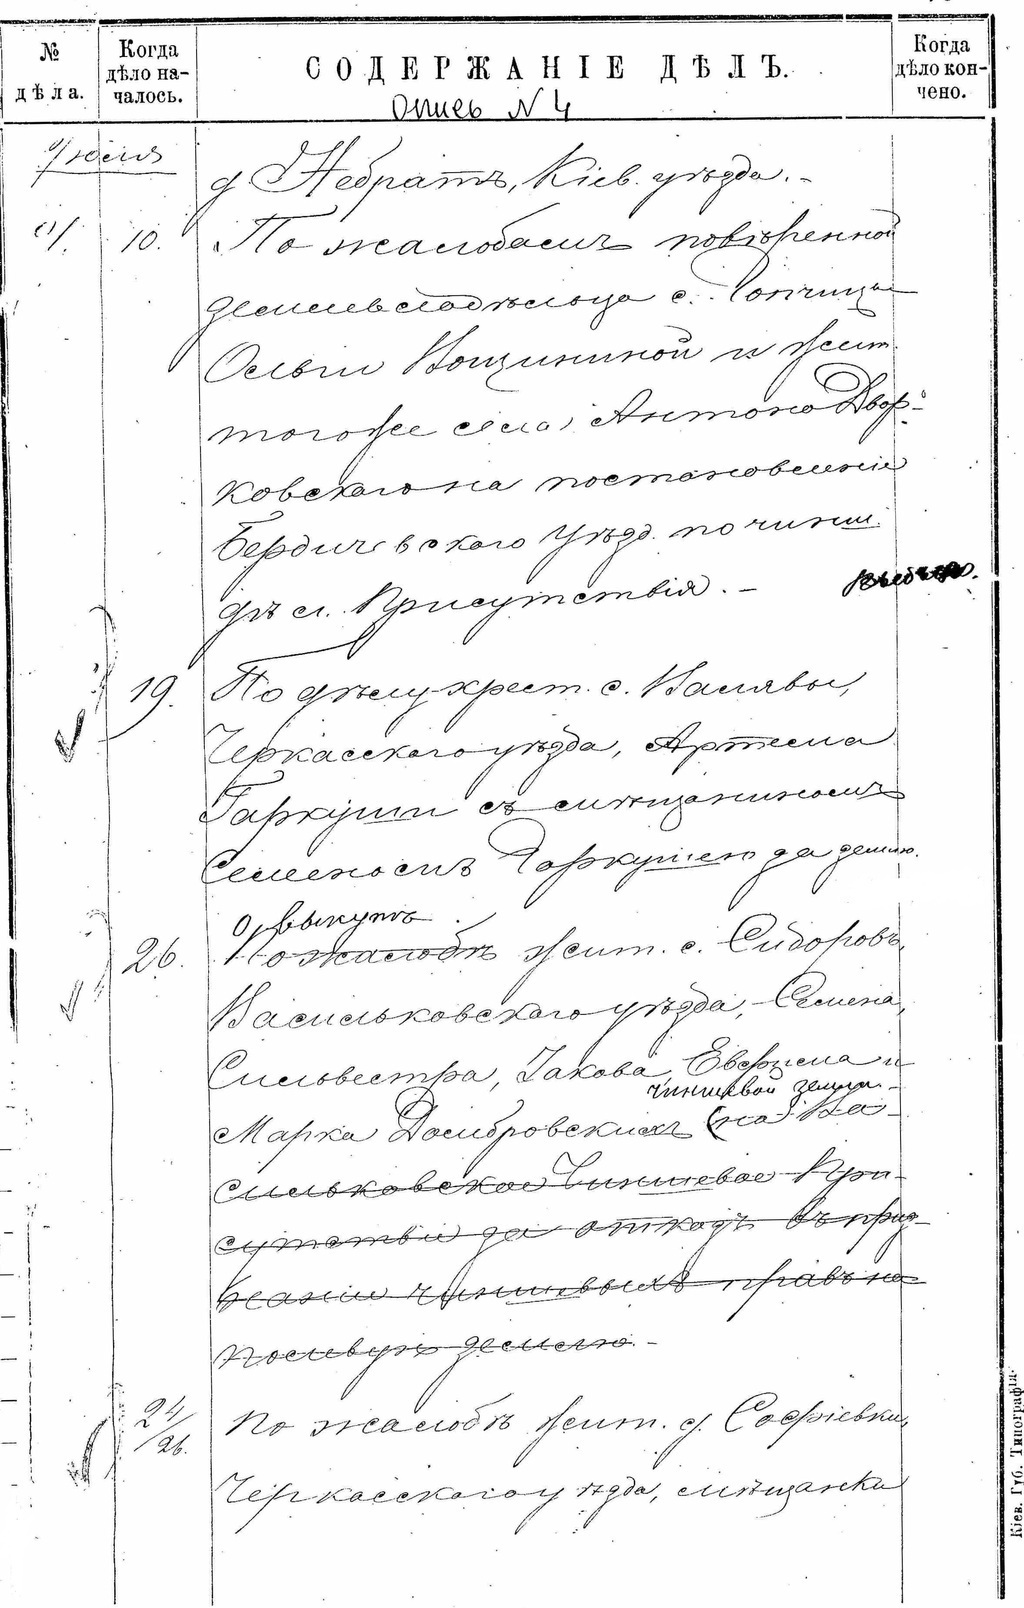 № дѣла.
Когда дѣло началось.
СОДЕРЖАНІЕ ДѢЛЪ.
Когда дѣло кончено.
Опись N 4
д. Небратъ, Кіев. уѣзда. -
10. По жалобамъ повѣренной
землевладѣльца с.
Ольги Вощининой и жит.
тогоже села, Антона Двор-
ковскаго на постановленіе
Бердичевскаго Уѣзд. по чинш.
дѣл. Присутствія. -
19. По дѣлу крест. с. Валявы,
Черкасскаго уѣзда, Артема
Гаркуши съ мѣщаниномъ
Семеномъ Гаркушею за землю.
О выкупѣ
26. По жалобѣ жит. с. Сидоровъ,
Васильковскаго уѣзда, Семена,
Сильвестра, Іакова, Евфима и
чиншевой земли
Марка Домбровскихъ (на Ва-
сильковское Чиншевое При-
сутствіе за отказъ въ приз-
наніи чиншевыхъ правъ на
полевую землю. -
24/26. По жалобѣ жит. д. Софіевки,
Черкасскаго уѣзда, мѣщанки
Кіев. Губ. Типографія.